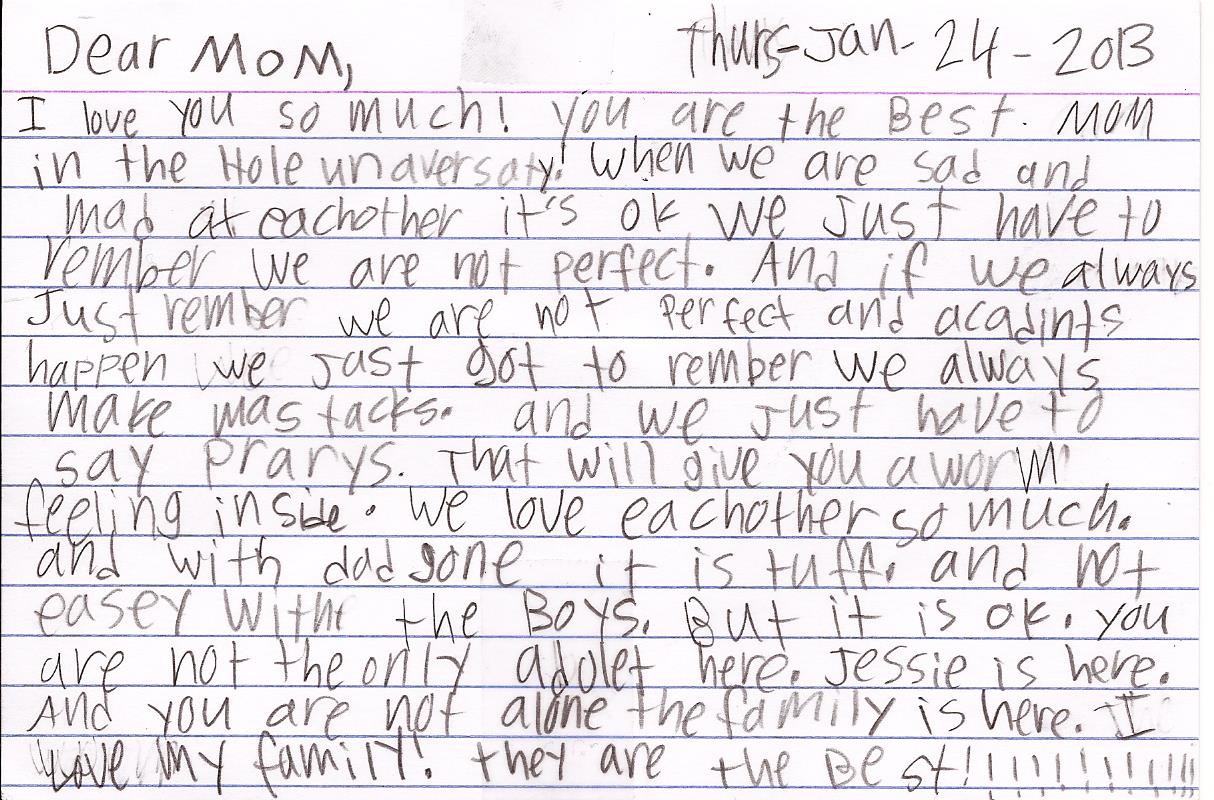 Dear MOM, Thurs-Jan-24-2013
I love you so much! you are the Best. MOM
in the Hole unaversaty! When we are sad and
mad at eachother it's ok we Just have to
rember we are not perfect. And if we always
Just rember we are not perfect and acadints
happen we Just got to rember we always
make mastacks. and we Just have to
say prarys. That will give you a worm
feeling inside. We love eachother so much.
and with dad gone it is tuff. and not
easey With the Boys. But it is ok. you
are not the only adolet here. Jessie is here.
And you are not alone the family is here. I
Love My family! they are the Best!!!!!!!!!!!!